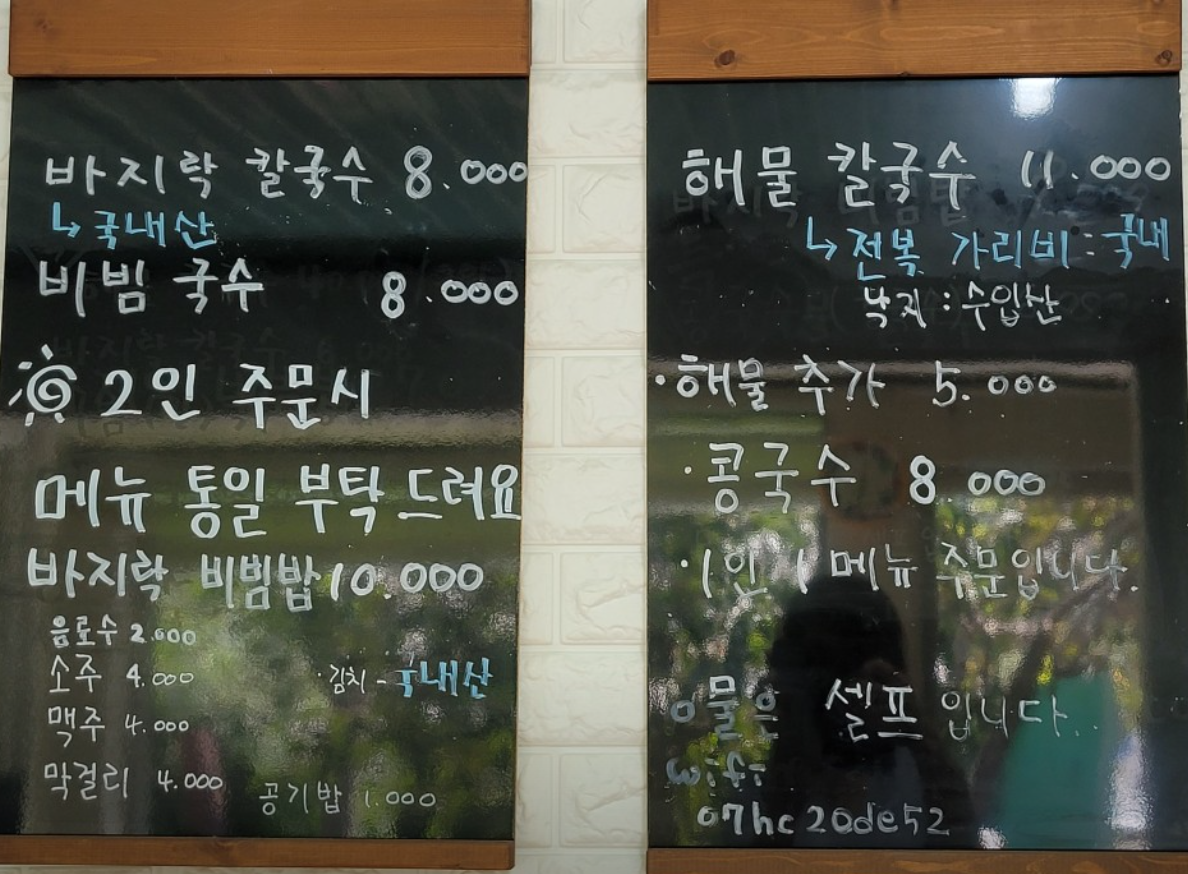 바지락 칼국수 8.000
↳ 국내산
비빔 국수 8.000
2인 주문시
메뉴 통일 부탁 드려요
바지락 비빔밥 10.000
음료수 2.000
소주 4.000
·김치 - 국내산
맥주 4.000
막걸리 4.000
공기밥 1.000
해물 칼국수 11.000
↳ 전복 가리비 : 국내
낙지 : 수입산
·해물 추가 5.000
·콩국수 8.000
·1인 1 메뉴 주문입니다.
물은 셀프 입니다..
wifi
07hc20de52